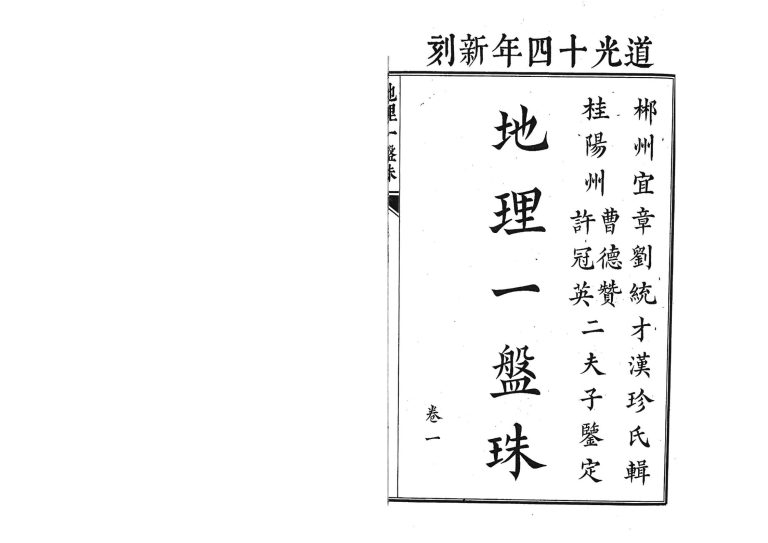 道光十四年新刻
郴州宜章劉統才漢珍氏輯
桂陽州曹德贊許冠英二夫子鑒定
地理一盤珠
卷一
地理一盤珠